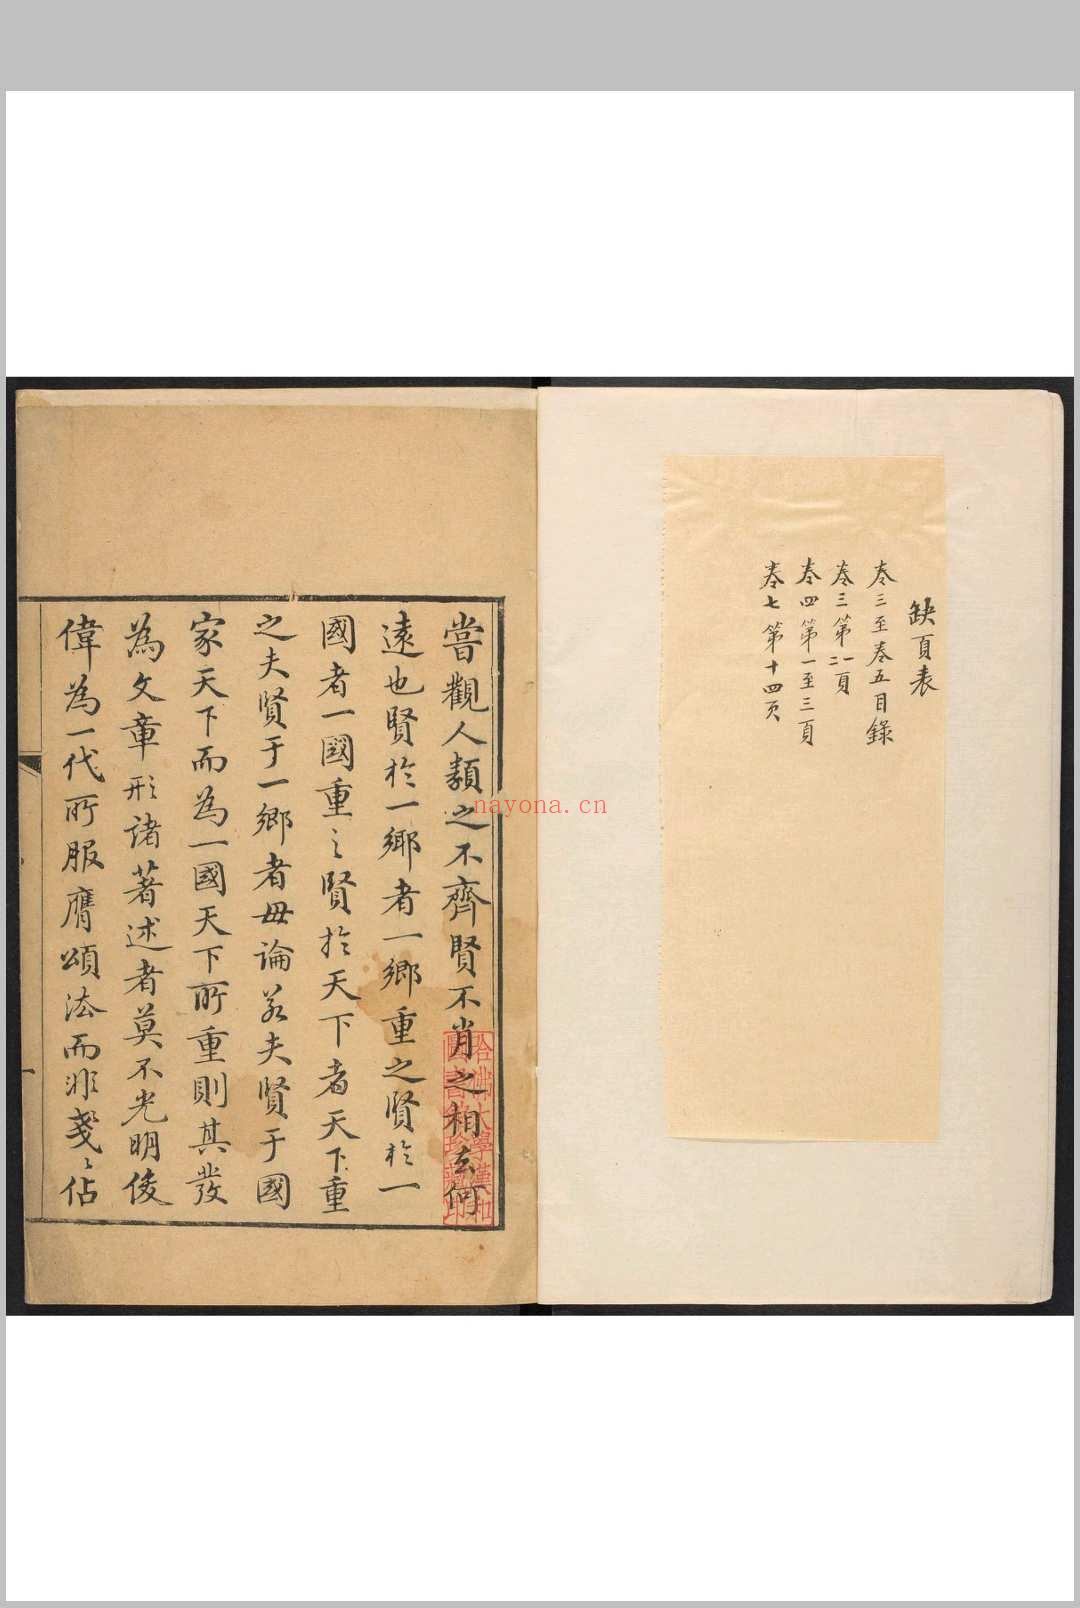 缺頁表
卷三至卷五目錄
卷三第一二頁
卷四第一至三頁
卷七第十四页
嘗觀人類之不齊賢不肖之相去何
遠也賢於一鄉者一鄉重之賢於一
國者一國重之賢於天下者天下重
之夫賢于一鄉者毋論若夫賢于國
家天下而為一國天下所重則其發
為文章形諸著述者莫不光明俊
偉為一代所服膺頌法而非戔〻佔
哈佛大學漢和
圖書館珍藏印
nayona.cn